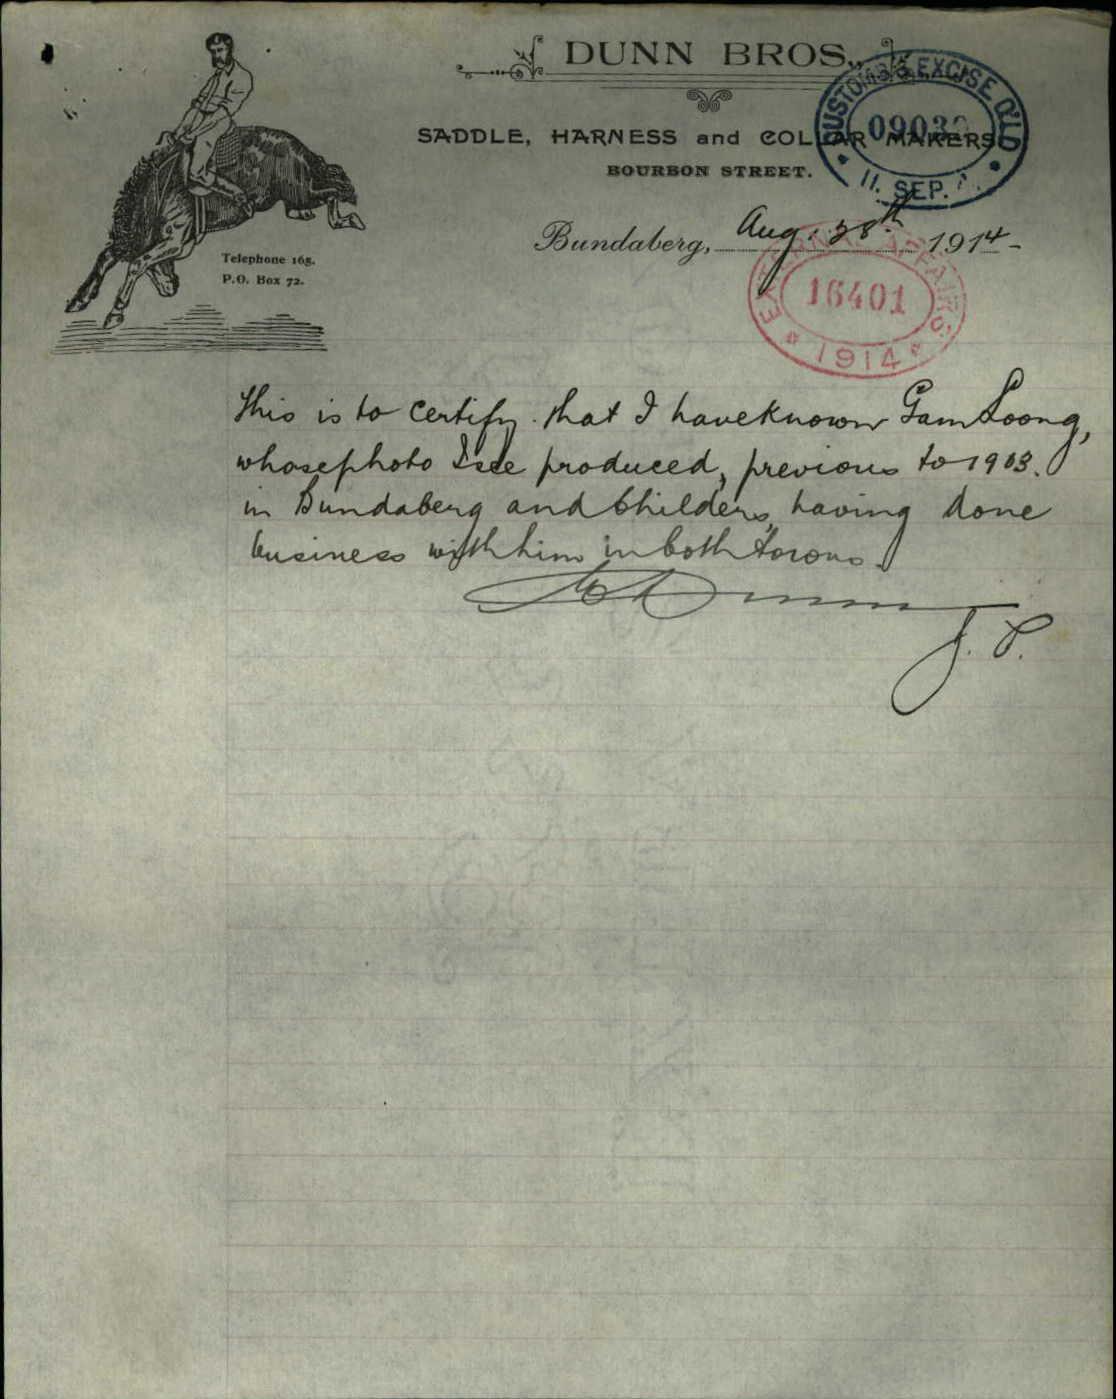 DUNN BROS.,
SADDLE, HARNESS and COLLAR MAKERS
BOURBON STREET.
CUSTOMS & EXCISE Q'LD
11. SEP.
Bundaberg, Aug. 28th 1914-
Telephone 165.
P.O. Box 72.
EXTERNAL AFFAIRS.
16401
1914
This is to certify that I have known Gam Loong,
whose photo I see produced, previous to 1903.
in Bundaberg and Childers, having done
business with him in both towns.
Dunn
J. P.